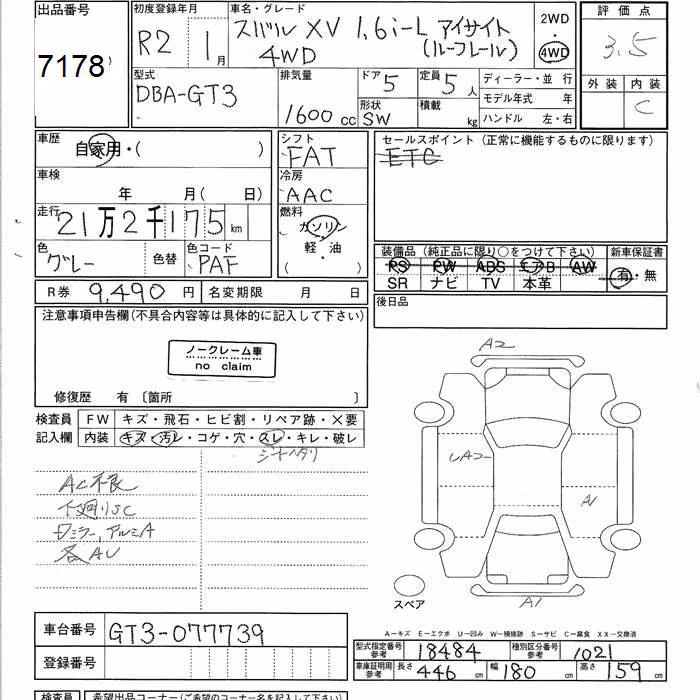 出品番号 7178
初度登録年月 R2 1月
車名・グレード スバル XV 1.6i-L アイサイト
4WD (ルーフレール)
2WD ・ 4WD
評価点 3.5
外装 内装 C
型式 DBA-GT3
排気量 1600 cc
ドア 5 定員 5人
形状 SW 積載 kg
ディーラー・並 行
モデル年式 年
ハンドル 左・右
車歴 自家用・( )
シフト FAT
セールスポイント (正常に機能するものに限ります)
ETC
車検 年 月( 日)
冷房 AAC
走行 21万2千175 km
燃料 ガソリン
軽・油
( )
色 グレー 色替 色コード PAF
装備品 (純正品に限り○をつけて下さい) 新車保証書
PS PW ABS エアB AW 有・無
SR ナビ TV 本革
R券 9,490 円 名変期限 月 日
後日品
注意事項申告欄(不具合内容等は具体的に記入して下さい)
ノークレーム車
no claim
修復歴 有 〔箇所 〕
検査員 FW キズ・飛石・ヒビ割・リペア跡・X要
記入欄 内装 キズ・汚レ・コゲ・穴・スレ・キレ・破レ
シートヘタリ
AC不良
下廻りSC
Dミラー, アルミA
各AU
A2
A1
A1
スペア
A-キズ E-エクボ U-凹み W-補修跡 S-サビ C-腐食 XX-交換済
車台番号 GT3-077739
登録番号
型式指定番号 参考 18484 種別区分番号 参考 1021
車庫証明用 参考 長さ 446 cm 幅 180 cm 高さ 159 cm
検査員 希望出品コーナー(ご希望のコーナー名を記入して下さい)